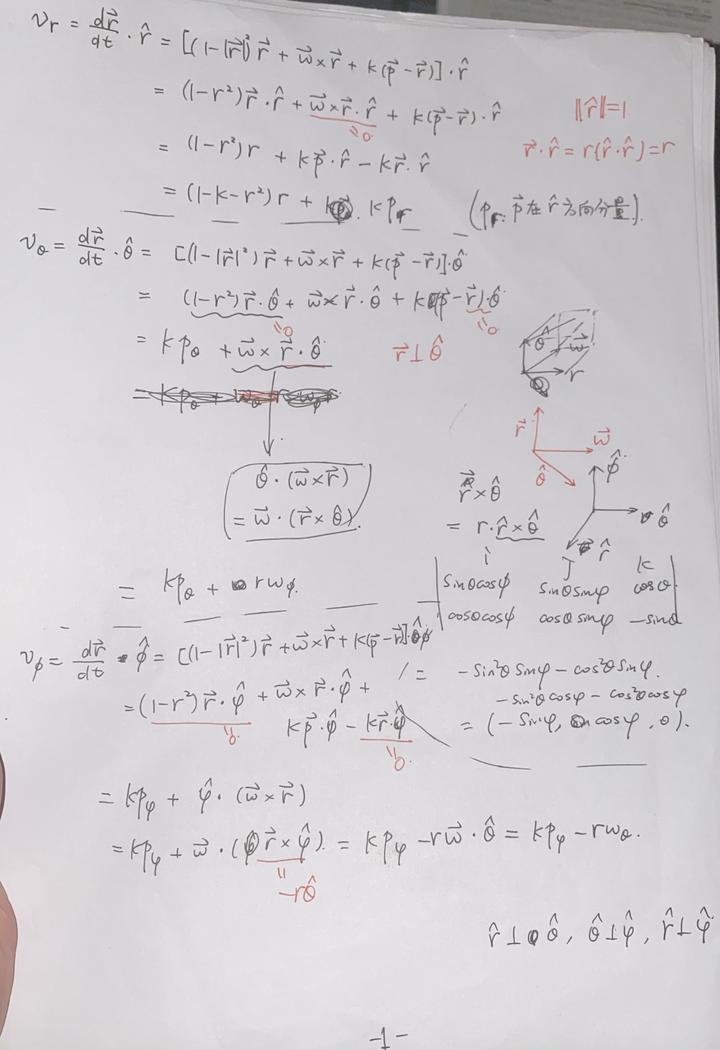 v_r = d\vec{r}/dt · \hat{r} = [(1-|\vec{r}|²)\vec{r} + \vec{ω}×\vec{r} + k(\vec{p}-\vec{r})]·\hat{r}
= (1-r²)\vec{r}·\hat{r} + \vec{ω}×\vec{r}·\hat{r} + k(\vec{p}-\vec{r})·\hat{r}
=0
‖\hat{r}‖=1
= (1-r²)r + k\vec{p}·\hat{r} - k\vec{r}·\hat{r}
\vec{r}·\hat{r} = r(\hat{r}·\hat{r}) = r
= (1-k-r²)r + kp_r
(p_r: \vec{p}在\hat{r}方向分量).
v_θ = d\vec{r}/dt · \hat{θ} = [(1-|\vec{r}|²)\vec{r} + \vec{ω}×\vec{r} + k(\vec{p}-\vec{r})]·\hat{θ}
= (1-r²)\vec{r}·\hat{θ} + \vec{ω}×\vec{r}·\hat{θ} + k(\vec{p}-\vec{r})·\hat{θ}
=0 =0
= kp_θ + \vec{ω}×\vec{r}·\hat{θ}
\vec{r}⊥\hat{θ}
\hat{θ} \vec{w} r
\vec{r} \vec{w} \hat{θ}
\hat{φ} \hat{θ} \hat{r}
\hat{θ}·(\vec{ω}×\vec{r})
= \vec{ω}·(\vec{r}×\hat{θ}).
\vec{r}×\hat{θ}
= r·\hat{r}×\hat{θ}
i J K
sinθcosφ sinθsinφ cosθ
cosθcosφ cosθsinφ -sinθ
= kp_θ + rω_φ.
v_φ = d\vec{r}/dt · \hat{φ} = [(1-|\vec{r}|²)\vec{r} + \vec{ω}×\vec{r} + k(\vec{p}-\vec{r})]·\hat{φ}
= -sin²θsinφ - cos²θsinφ.
-sin²θcosφ - cos²θcosφ
= (-sinφ, cosφ, 0).
= (1-r²)\vec{r}·\hat{φ} + \vec{ω}×\vec{r}·\hat{φ} +
=0
k\vec{p}·\hat{φ} - k\vec{r}·\hat{φ}
=0.
= kp_φ + \hat{φ}·(\vec{ω}×\vec{r})
= kp_φ + \vec{ω}·(\vec{r}×\hat{φ}). = kp_φ - r\vec{ω}·\hat{θ} = kp_φ - rω_θ.
= -r\hat{θ}
\hat{r}⊥\hat{θ}, \hat{θ}⊥\hat{φ}, \hat{r}⊥\hat{φ}
-1-